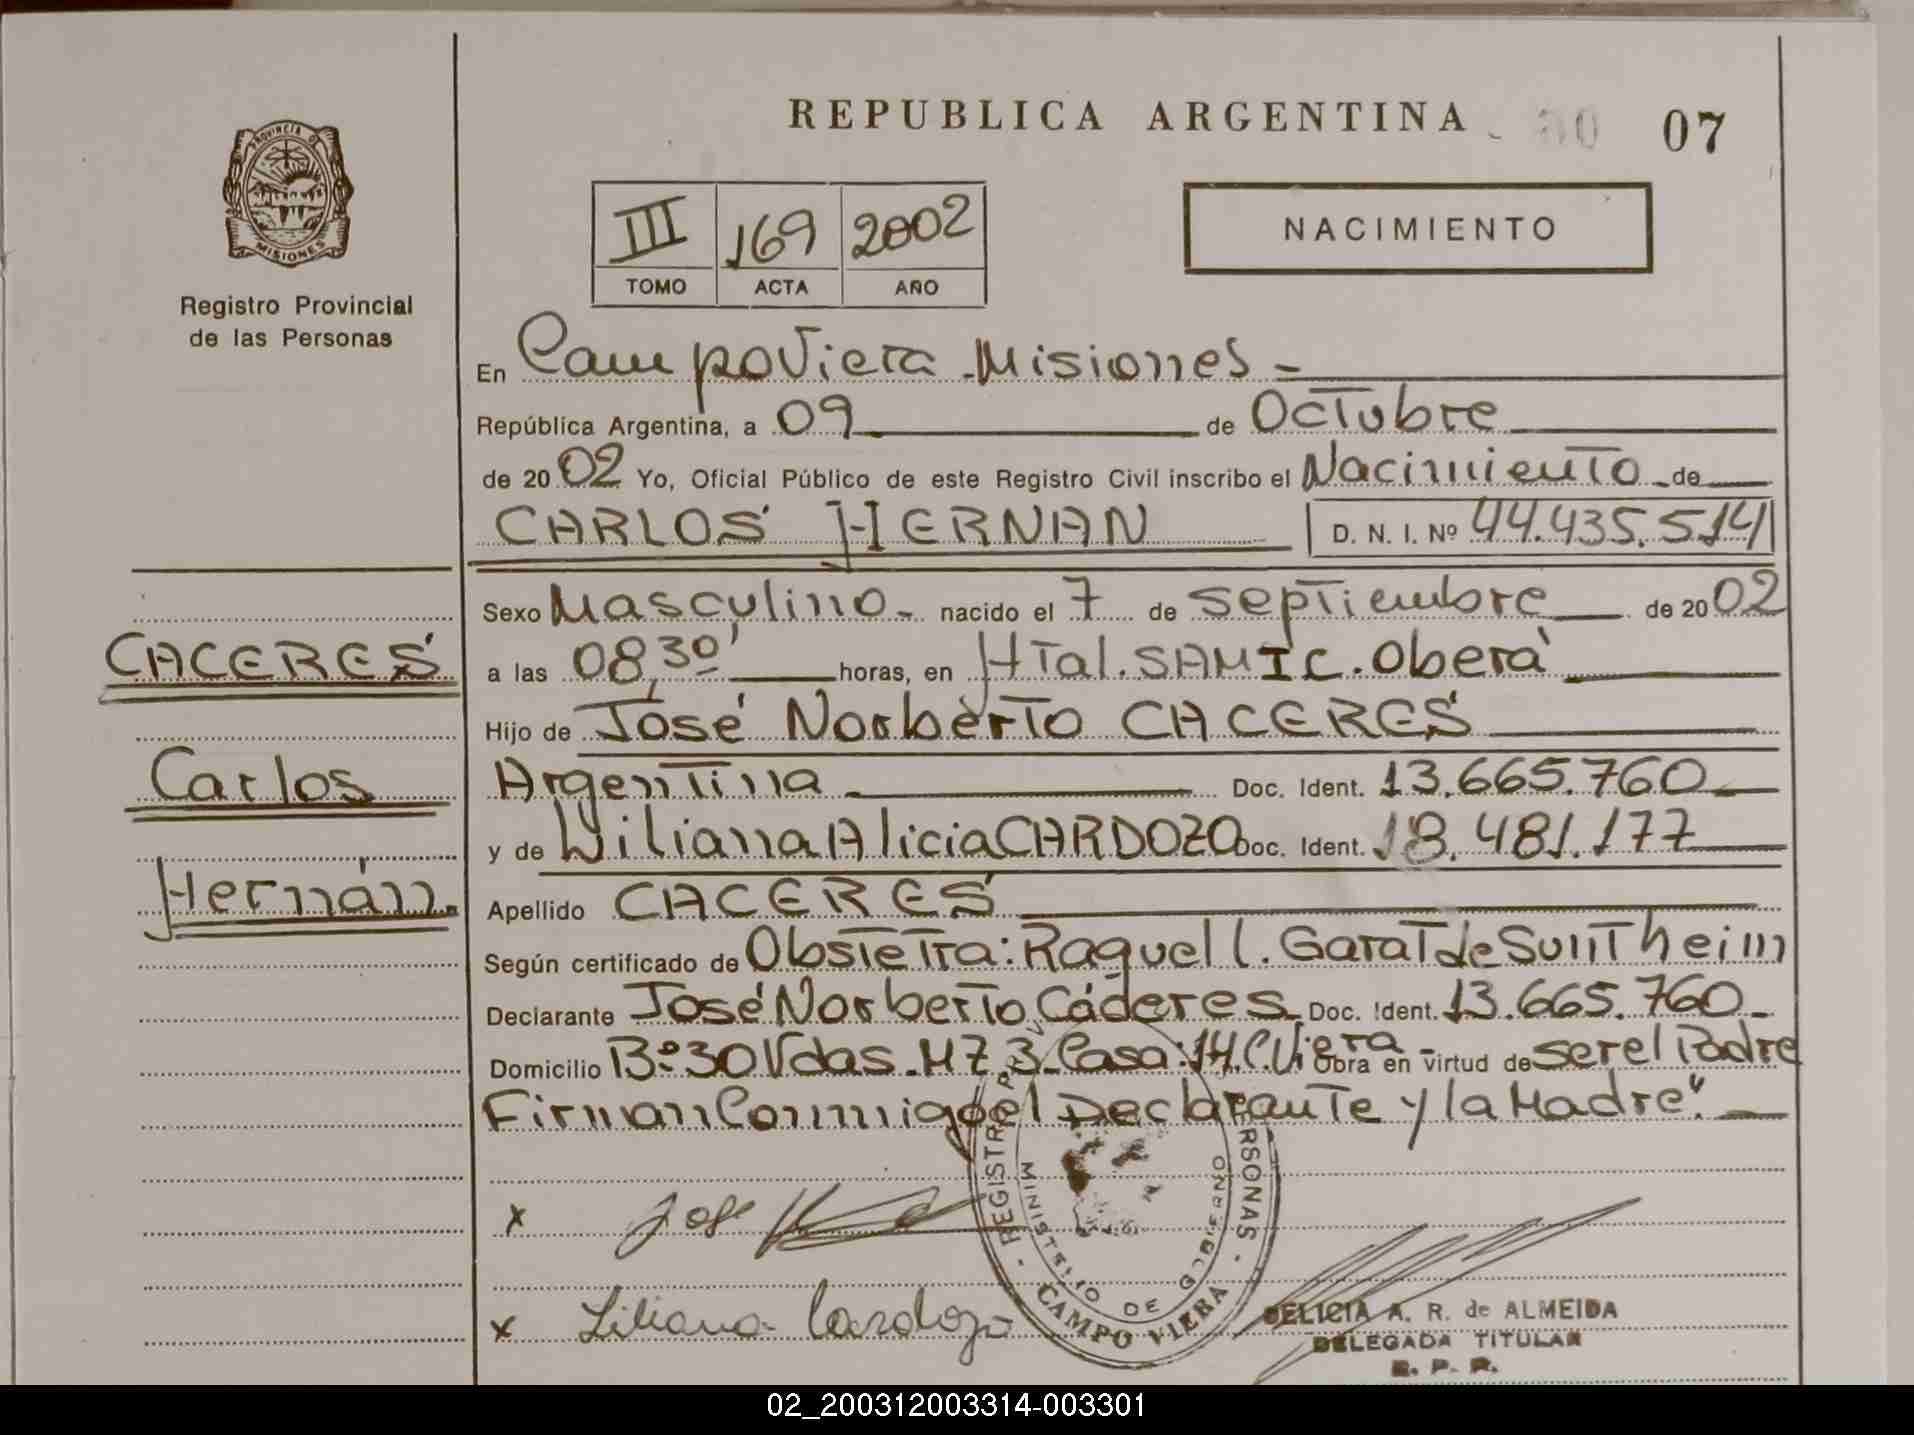 REPUBLICA ARGENTINA
07
PROVINCIA D
MISIONES
Registro Provincial
de las Personas
III 169 2002
TOMO ACTA AÑO
NACIMIENTO
En Campo Viera - Misiones -
República Argentina, a 09 de Octubre
de 2002 Yo, Oficial Público de este Registro Civil inscribo el Nacimiento de
CARLOS HERNAN D. N. I. Nº 44.435.514
Sexo Masculino - nacido el 7 de septiembre de 2002
a las 08,30' horas, en HTal. SAMIC. Oberá
Hijo de José Norberto CACERES
Argentina Doc. Ident. 13.665.760
y de Liliana Alicia CARDOZO Doc. Ident. 18.481.177
Apellido CACERES
Según certificado de Obstetra: Raquel l. Garat de Suntheim
Declarante José Norberto Cáceres Doc. Ident. 13.665.760
Domicilio Bº 30 Vdas. MZ 3 Casa: 14. C. Viera Obra en virtud de ser el Padre
Firman Conmigo el Declarante y la Madre".
CACERES
Carlos
Hernán.
x José
x Liliana Cardozo
REGISTR PROV RSONAS - CAMPO VIERA -
MINISTERIO DE GOBIERNO
DELICIA A. R. de ALMEIDA
DELEGADA TITULAR
R. P. P.
02_200312003314-003301